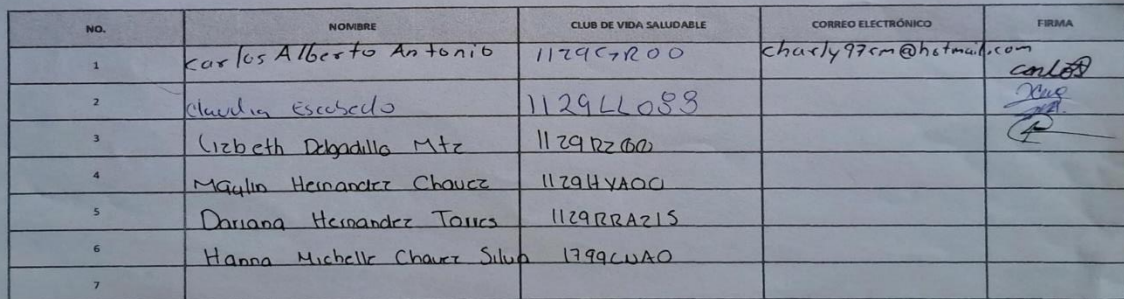 NO. NOMBRE CLUB DE VIDA SALUDABLE CORREO ELECTRÓNICO FIRMA
1 Carlos Alberto Antonio 1129GR00 charly97cm@hotmail.com Carlos
2 Claudia Escobedo 1129LL088
3 Lizbeth Delgadillo Mtz
4 Maylin Hernandez Chavez 1129HYAOO
5 Dariana Hernandez Torres 1129RRAZIS
6 Hanna Michelle Chavez Silva
7